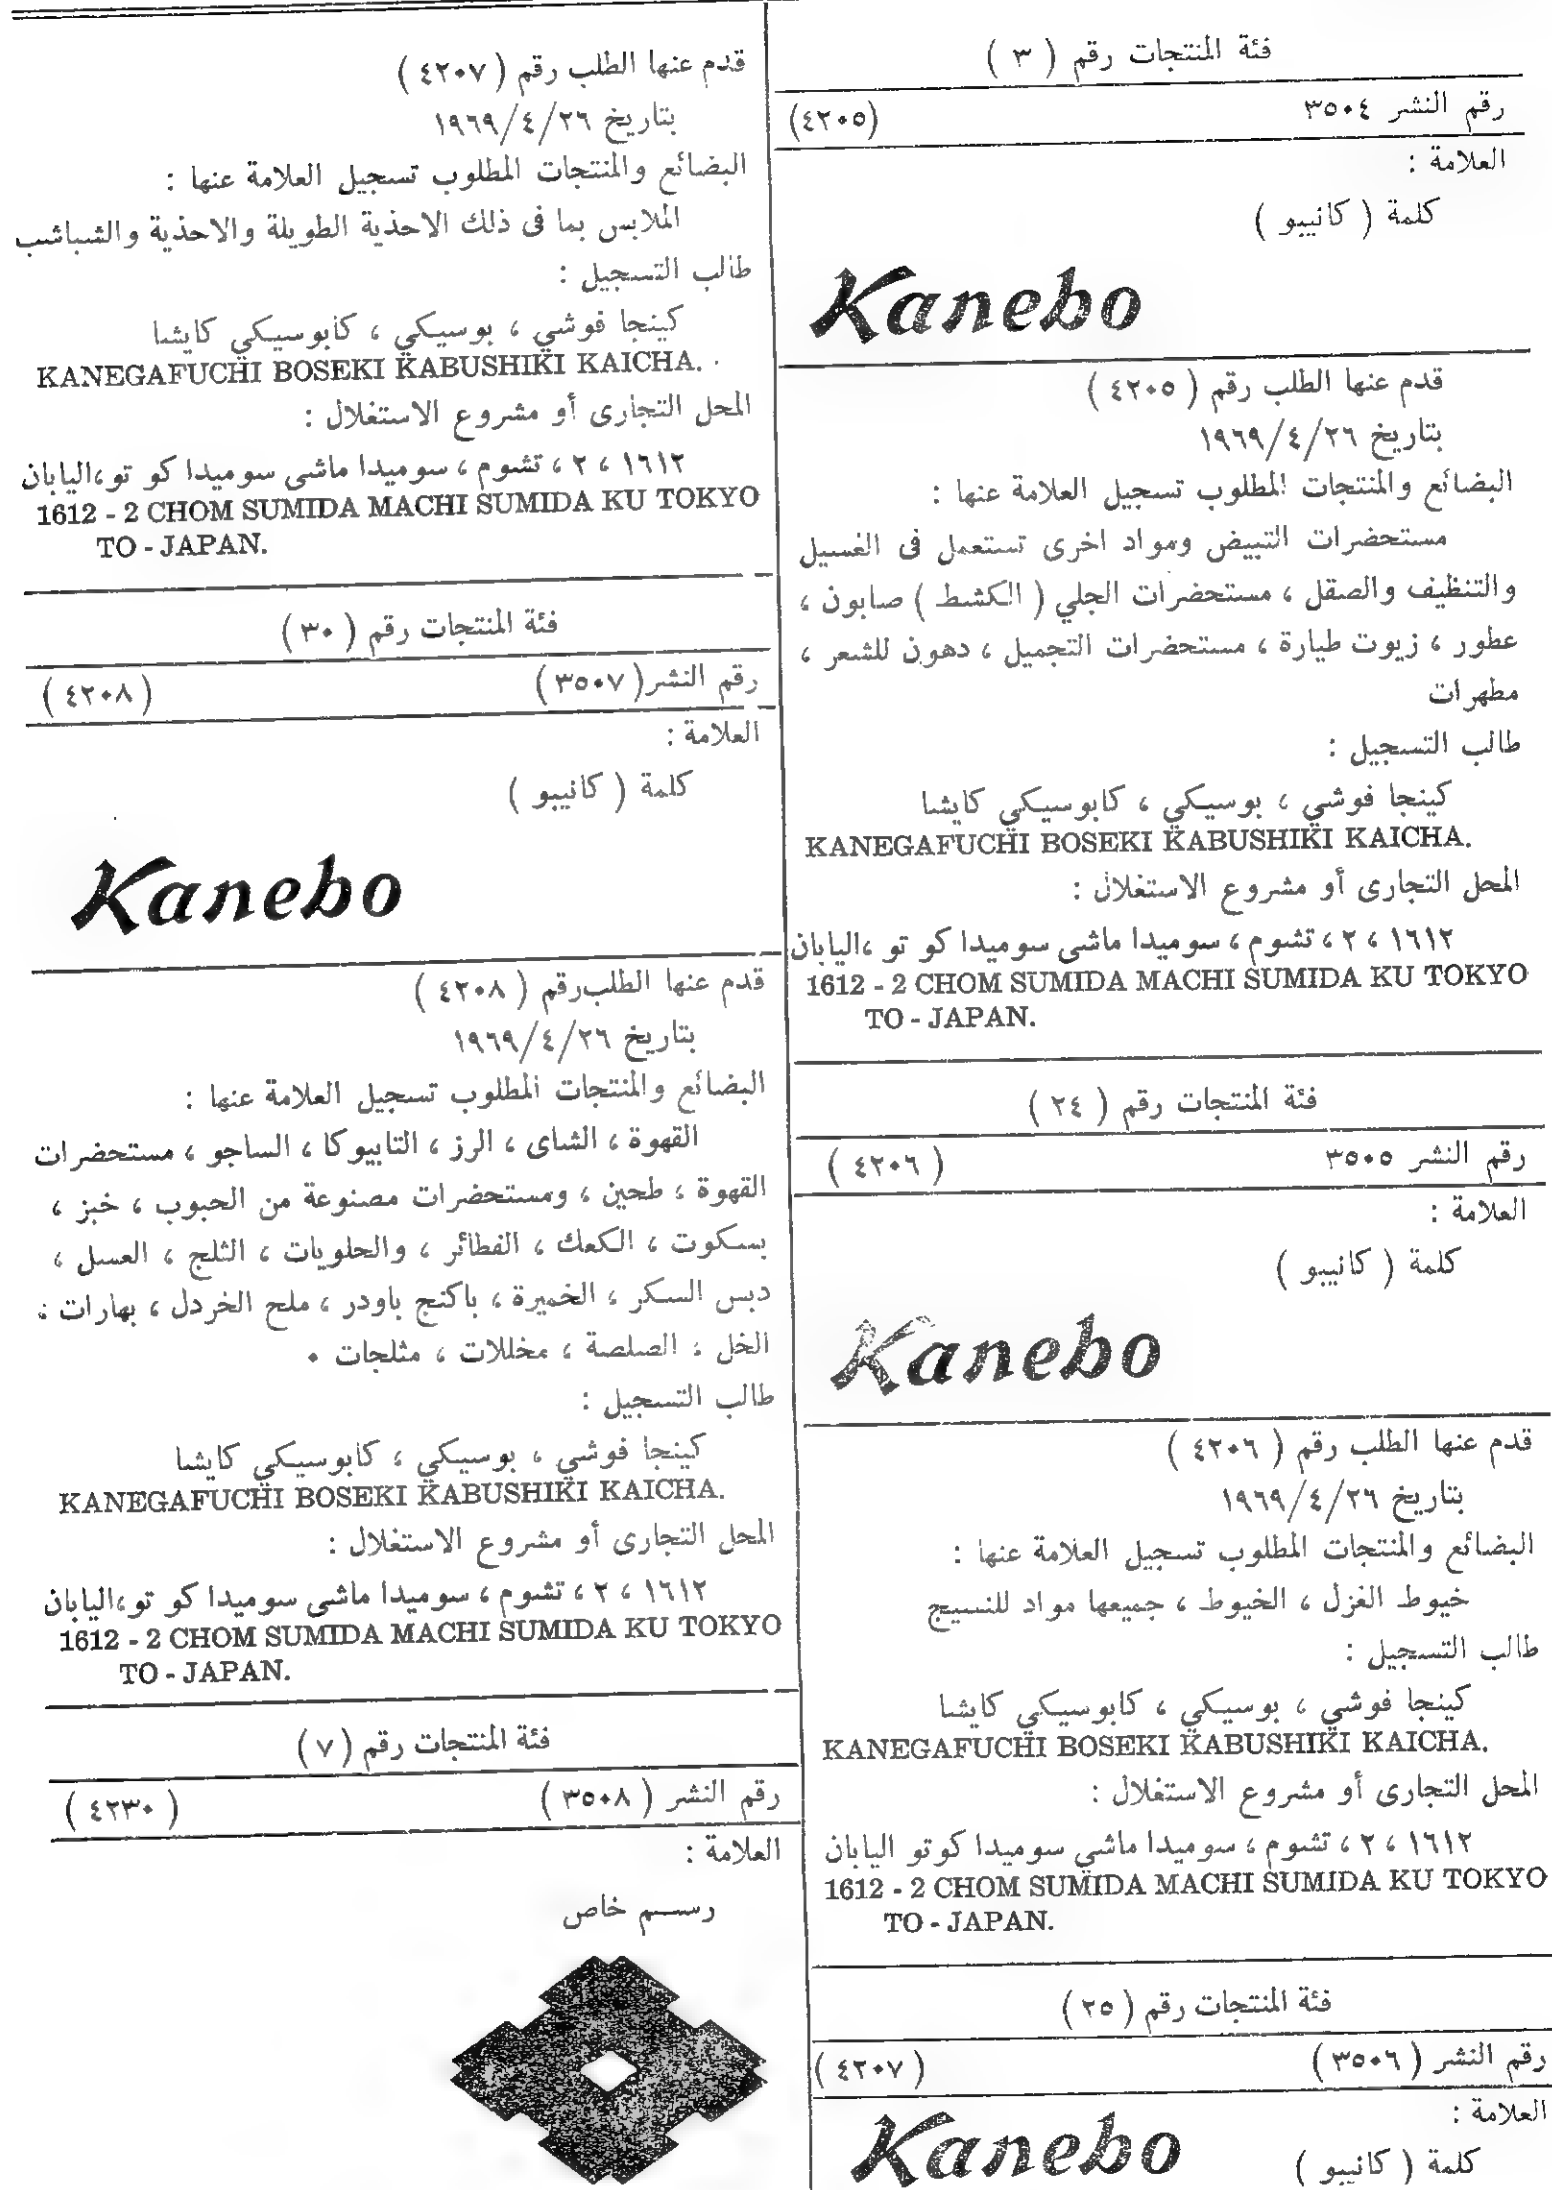 فئة المنتجات رقم ( ٣ )
رقم النشر ٣٥٠٤ (٤٢٠٥)
العلامة :
كلمة ( كانيبو )
Kanebo
قدم عنها الطلب رقم ( ٤٢٠٥ )
بتاريخ ٢٦/٤/١٩٦٩
البضائع والمنتجات المطلوب تسجيل العلامة عنها :
مستحضرات التبييض ومواد اخرى تستعمل فى الغسيل
والتنظيف والصقل ، مستحضرات الجلي ( الكشط ) صابون ،
عطور ، زيوت طيارة ، مستحضرات التجميل ، دهون للشعر ،
مطهرات
طالب التسجيل :
كينجا فوشي ، بوسيكي ، كابوسيكي كايشا
KANEGAFUCHI BOSEKI KABUSHIKI KAICHA.
المحل التجارى أو مشروع الاستغلال :
١٦١٢ ، ٢ ، تشوم ، سوميدا ماشى سوميدا كو تو ،اليابان
1612 - 2 CHOM SUMIDA MACHI SUMIDA KU TOKYO
TO - JAPAN.
فئة المنتجات رقم ( ٢٤ )
رقم النشر ٣٥٠٥ ( ٤٢٠٦ )
العلامة :
كلمة ( كانيبو )
Kanebo
قدم عنها الطلب رقم ( ٤٢٠٦ )
بتاريخ ٢٦/٤/١٩٦٩
البضائع والمنتجات المطلوب تسجيل العلامة عنها :
خيوط الغزل ، الخيوط ، جميعها مواد للنسيج
طالب التسجيل :
كينجا فوشي ، بوسيكي ، كابوسيكي كايشا
KANEGAFUCHI BOSEKI KABUSHIKI KAICHA.
المحل التجارى أو مشروع الاستغلال :
١٦١٢ ، ٢ ، تشوم ، سوميدا ماشي سوميدا كوتو اليابان
1612 - 2 CHOM SUMIDA MACHI SUMIDA KU TOKYO
TO - JAPAN.
فئة المنتجات رقم ( ٢٥ )
رقم النشر ( ٣٥٠٦ ) ( ٤٢٠٧ )
العلامة :
كلمة ( كانيبو )
Kanebo
قدم عنها الطلب رقم ( ٤٢٠٧ )
بتاريخ ٢٦/٤/١٩٦٩
البضائع والمنتجات المطلوب تسجيل العلامة عنها :
الملابس بما فى ذلك الاحذية الطويلة والاحذية والشباشب
طالب التسجيل :
كينجا فوشي ، بوسيكي ، كابوسيكي كايشا
KANEGAFUCHI BOSEKI KABUSHIKI KAICHA.
المحل التجارى أو مشروع الاستغلال :
١٦١٢ ، ٢ ، تشوم ، سوميدا ماشى سوميدا كو تو،اليابان
1612 - 2 CHOM SUMIDA MACHI SUMIDA KU TOKYO
TO - JAPAN.
فئة المنتجات رقم ( ٣٠ )
رقم النشر( ٣٥٠٧ ) ( ٤٢٠٨ )
العلامة :
كلمة ( كانيبو )
Kanebo
قدم عنها الطلب رقم ( ٤٢٠٨ )
بتاريخ ٢٦/٤/١٩٦٩
البضائع والمنتجات المطلوب تسجيل العلامة عنها :
القهوة ، الشاى ، الرز ، التابيوكا ، الساجو ، مستحضرات
القهوة ، طحين ، ومستحضرات مصنوعة من الحبوب ، خبز ،
بسكوت ، الكعك ، الفطائر ، والحلويات ، الثلج ، العسل ،
دبس السكر ، الخميرة ، باكنج باودر ، ملح الخردل ، بهارات ،
الخل ، الصلصة ، مخللات ، مثلجات ٠
طالب التسجيل :
كينجا فوشي ، بوسيكي ، كابوسيكي كايشا
KANEGAFUCHI BOSEKI KABUSHIKI KAICHA.
المحل التجارى أو مشروع الاستغلال :
١٦١٢ ، ٢ ، تشوم ، سوميدا ماشى سوميدا كو تو،اليابان
1612 - 2 CHOM SUMIDA MACHI SUMIDA KU TOKYO
TO - JAPAN.
فئة المنتجات رقم ( ٧ )
رقم النشر ( ٣٥٠٨ ) ( ٤٢٣٠ )
العلامة :
رسم خاص